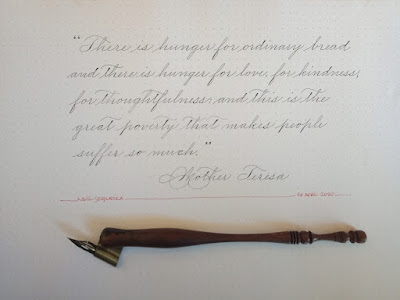 "There is hunger for ordinary bread
and there is hunger for love, for kindness,
for thoughtfulness; and this is the
great poverty that makes people
suffer so much."
Mother Teresa